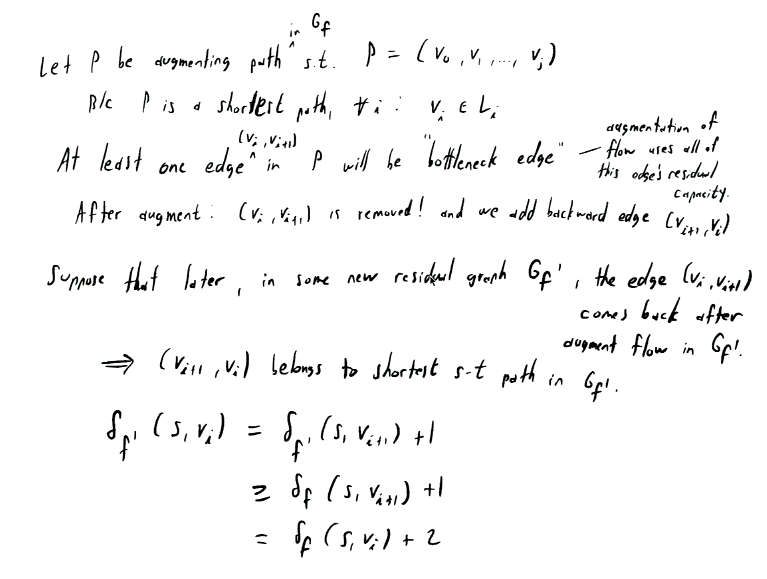 Let P be augmenting path ^ in G_f s.t. P = (v_0, v_1, ..., v_j)
B/c P is a shortest path, ∀i : v_i ∈ L_i
At least one edge ^ (v_i, v_{i+1}) in P will be "bottleneck edge" — augmentation of flow uses all of this edge's residual capacity.
After augment : (v_i, v_{i+1}) is removed! and we add backward edge (v_{i+1}, v_i)
Suppose that later, in some new residual graph G_f', the edge (v_i, v_{i+1})
comes back after
augment flow in G_f'.
⇒ (v_{i+1}, v_i) belongs to shortest s-t path in G_f'.
δ_f' (s, v_i) = δ_f' (s, v_{i+1}) + 1
≥ δ_f (s, v_{i+1}) + 1
= δ_f (s, v_i) + 2